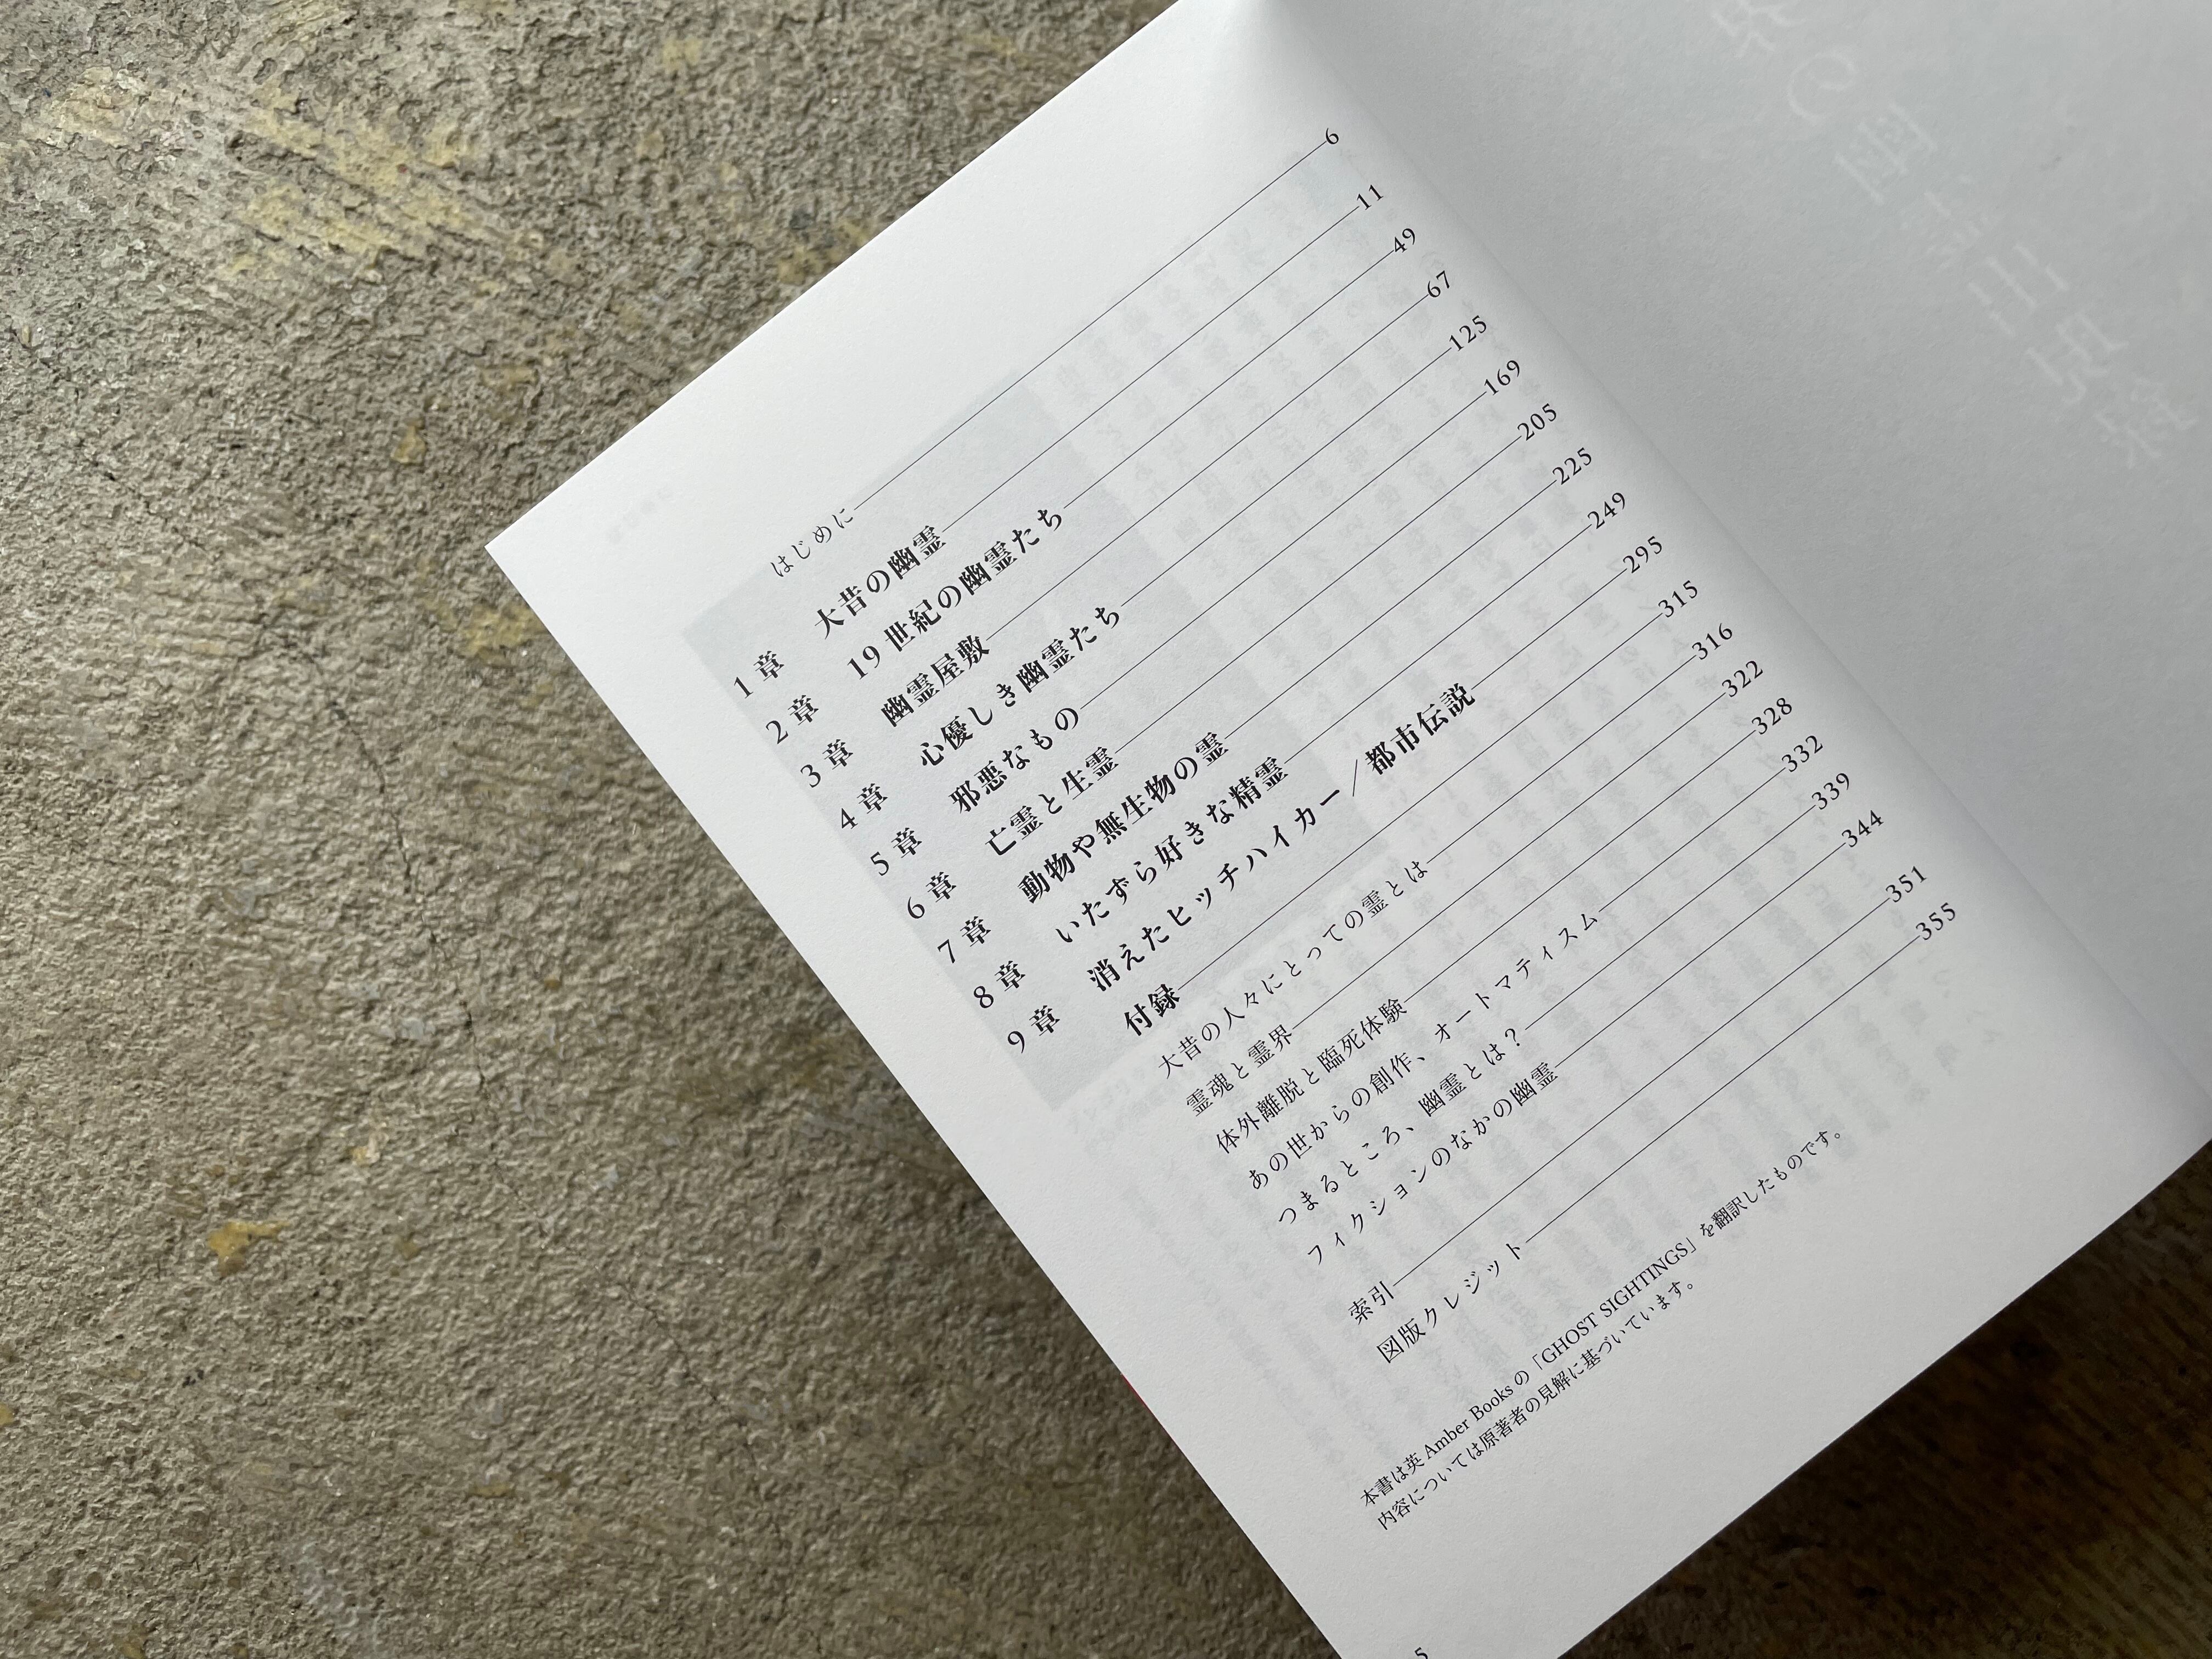 はじめに 6
1章 大昔の幽霊 11
2章 19世紀の幽霊たち 49
3章 幽霊屋敷 67
4章 心優しき幽霊たち 125
5章 邪悪なもの 169
6章 亡霊と生霊 205
7章 動物や無生物の霊 225
8章 いたずら好きな精霊 249
9章 消えたヒッチハイカー／都市伝説 295
付録 315
大昔の人々にとっての霊とは 316
霊魂と霊界 322
体外離脱と臨死体験 328
あの世からの創作、オートマティスム 332
つまるところ、幽霊とは？ 339
フィクションのなかの幽霊 344
索引 351
図版クレジット 355
本書は英 Amber Books の「GHOST SIGHTINGS」を翻訳したものです。
内容については原著者の見解に基づいています。
5